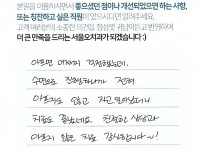 본원을 이용하시면서 좋으셨던 점이나 개선되었으면 하는 사항,
또는 칭찬하고 싶은 직원이 있으시다면 알려주세요.
고객 여러분의 소중한
더 큰 만족을 드리는 서울오치과가 되겠습니다 :)
아플까 걱정했는데.
수면으로 진행하니까 전혀
아프지도 않고 자고 일어났더니
치료도 끝났네요. 친절한 상담과
아프지 않은 치료 감사합니다~!